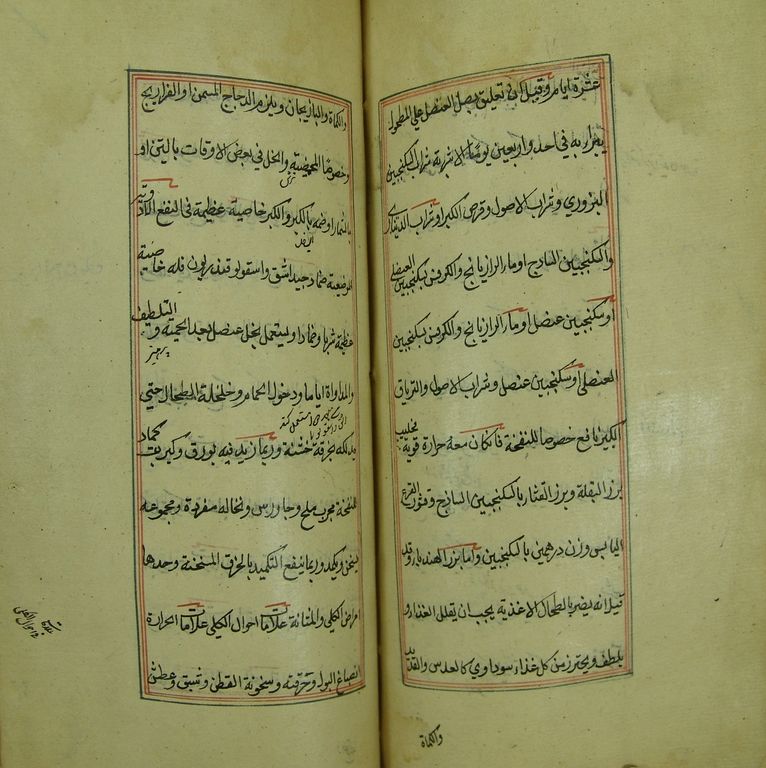 عشرة ايام وقيل ان تعليق بصل العنصل على المطحول
يبرا به في احد واربعين يوما الاشربة شراب السكنجبين
البزوري وشراب الاصول وقرص الكبر او شراب الديناري
والسكنجبين الساذج او ماء الرازيانج والكرفس بسكنجبين العنصلي
او سكنجبين عنصل او ماء الرازيانج والكرفس بسكنجبين
العنصلي او سكنجبين عنصل وشراب الاصول والترياق
الكبير نافع خصوصا للنفخة فان كان معه حرارة قوية
بزر البقلة وبزر القثاء بالسكنجبين الساذج وقشور القرع
اليابس وزن درهمين بالسكنجبين واما بزر الهندباء وقد
قيل انه يضر بالطحال الاغذية يجب ان يقلل الغذاء و
يلطف ويحترز من كل غذاء سوداوي كالعدس والقديد
والكماة
والكماة والباذنجان ويلزم الدجاج المسمن او الفراريج
وخصوصا المحمضة والخل في بعض الاوقات بالتين او
بالثمار او ضمه بالكبر والكبر خاصية عظيمة في النفع الادوية
الموضعية ضماد جيد اشق واسقولوقندريون فله خاصية
عظيمة شربا وضمادا ويستعمل بخل عنصل بعد الحمية و التلطيف
والمداواة اياما ودخول الحمام وخلخلة الطحال حتى
يدلكه بخرقة خشنة وربما زيد فيه بورق وكبريت كماد
للنفخة مجرب ملح وجاورس ونخالة منفردة ومجموعة
يسخن ويكمد وربما ينفع التكميد بالخرق المسخنة وحدها
امراض الكلى والمثانة علامات احوال الكلى علامات الحرارة
انصباغ البول وحرقته وسخونة القطن وشبق وعطش